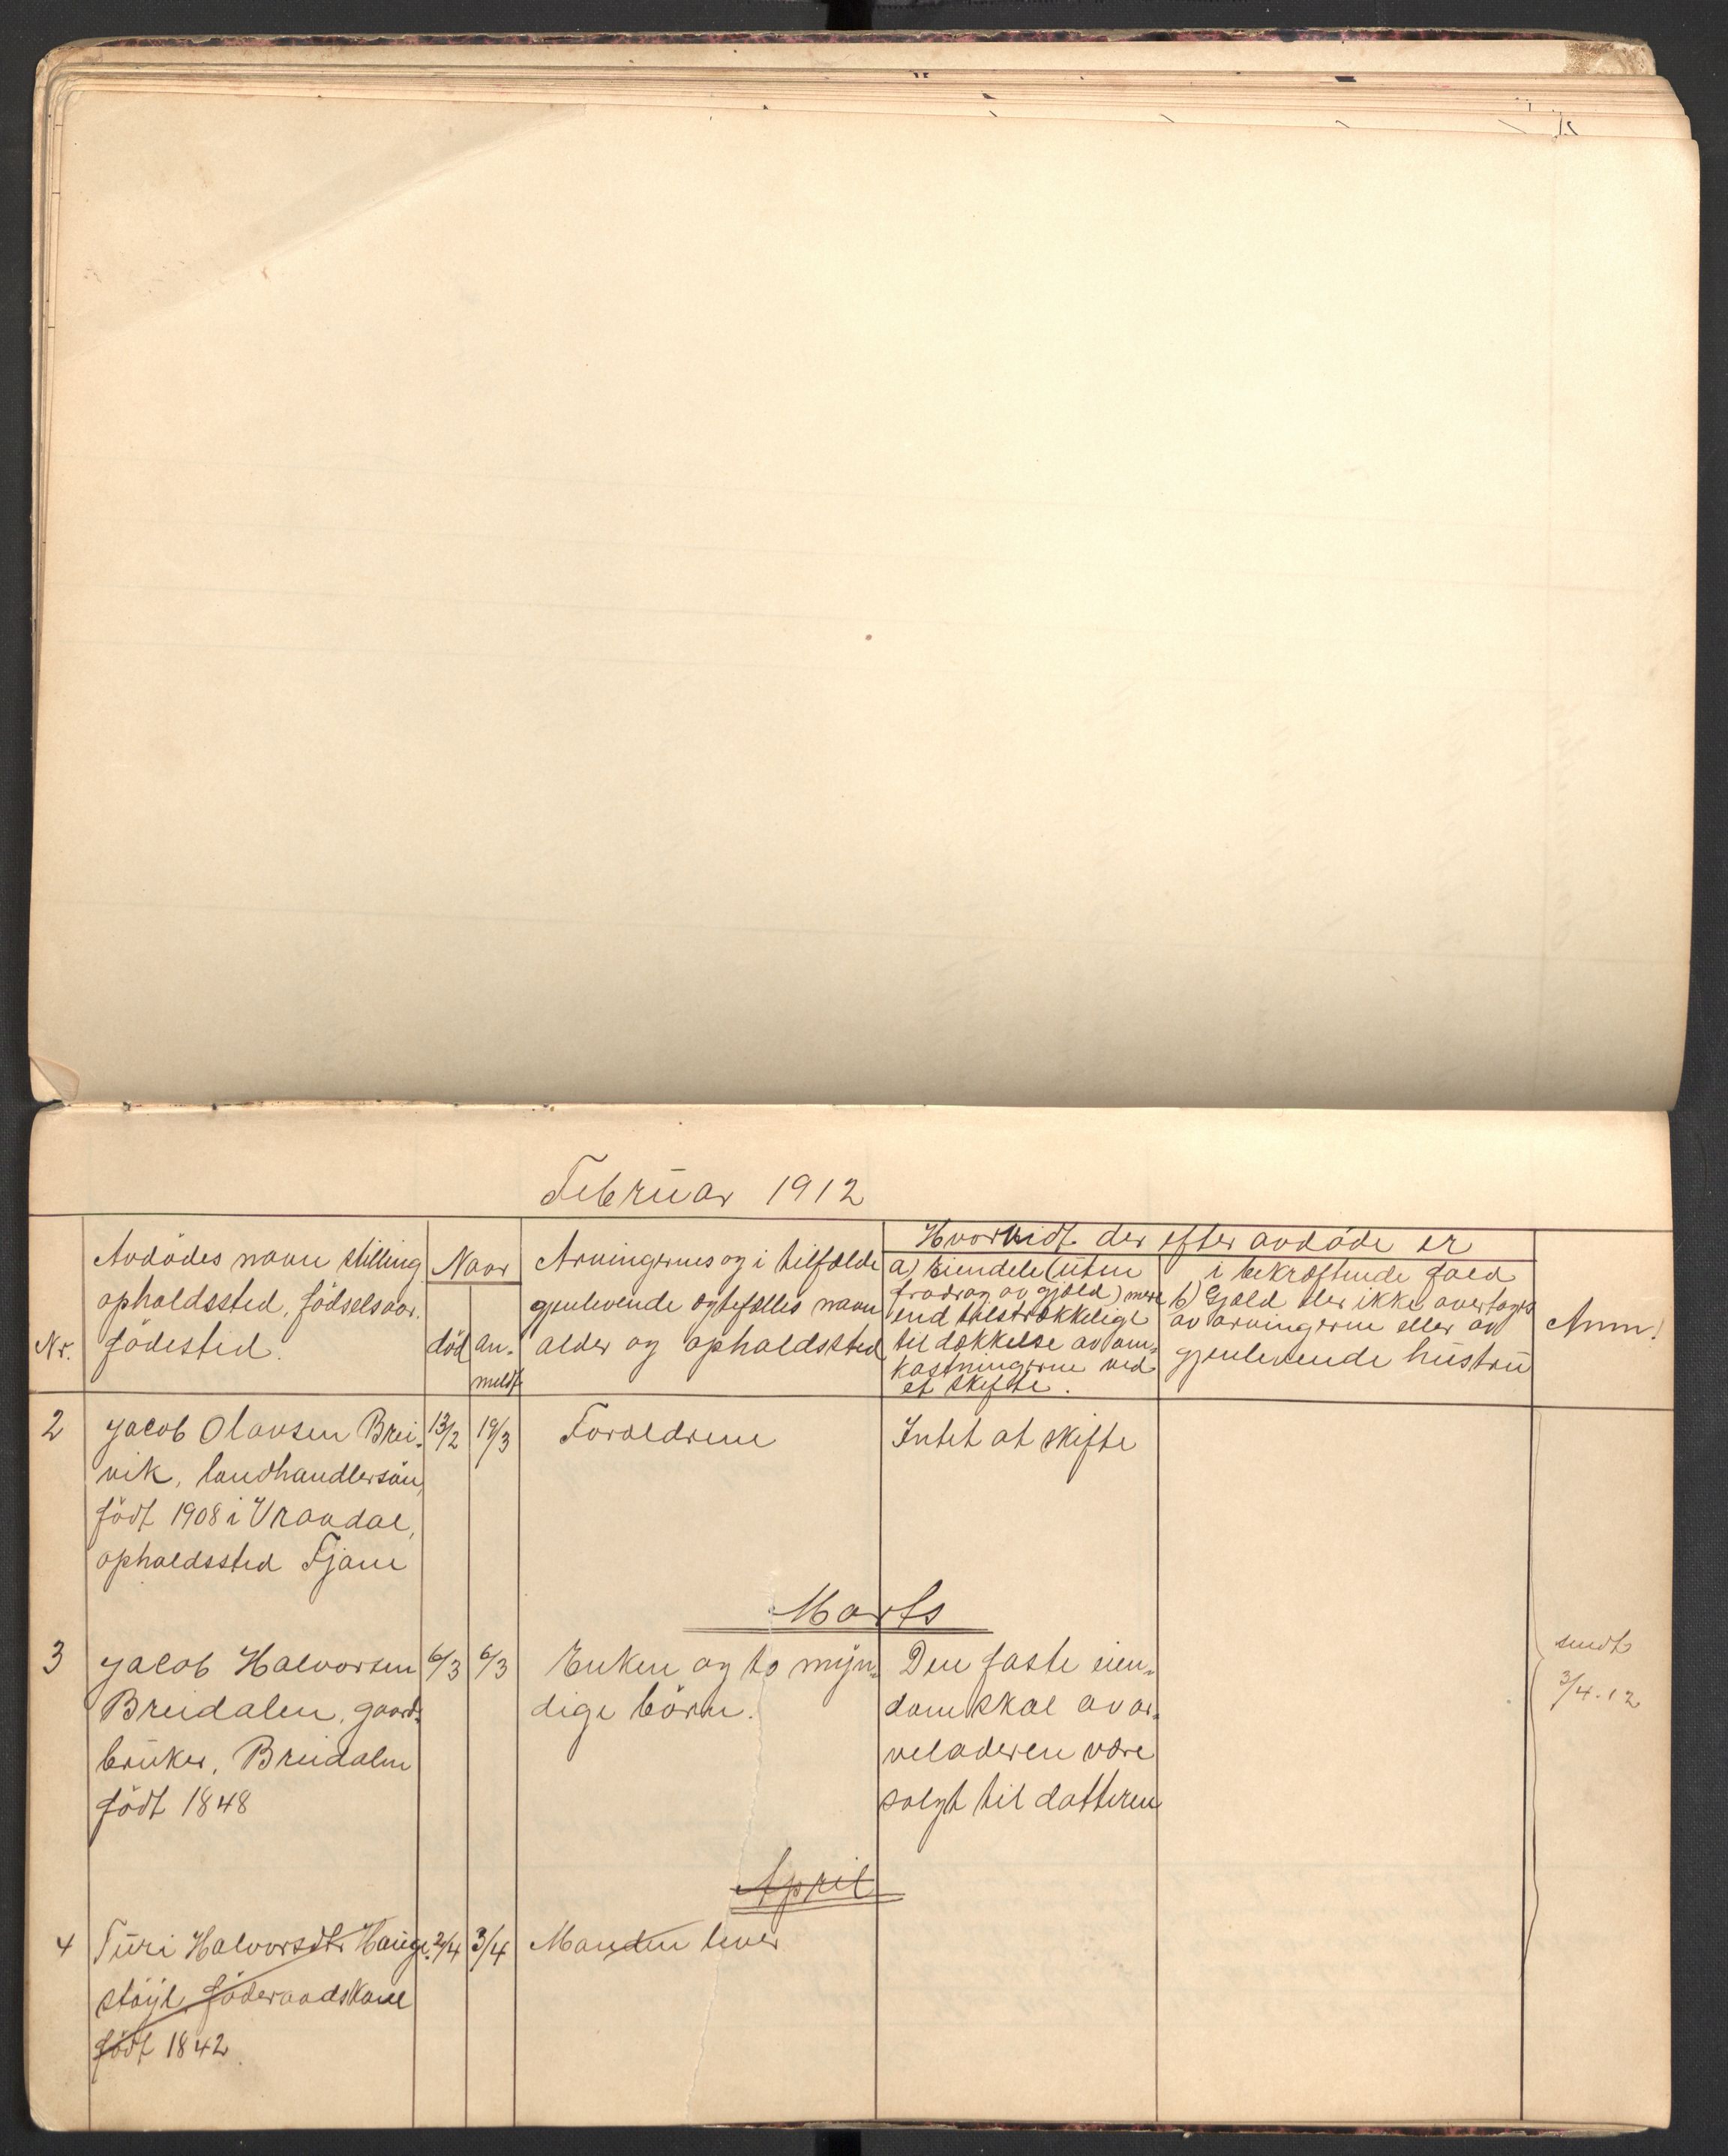 Februar 1912
Nr.
Avdödes navn stilling
opholdssted, födselsaar.
födested.
Naar
död
an-
meldt
Arvingernes og i tilfælde
gjenlevende egtefælles navn
alder og opholdssted
Hvorvidt der efter avdöde er
a) Eiendele (uten
fradrag av gjæld) mere
end tilstrækkelige
til dækkelse av om-
kostningerne ved
et skifte.
i bekræftende fald
b) Gjæld der ikke overtages
av arvingerne eller av
gjenlevende hustru
Anm.
2
Jacob Olavsen Brei-
vik, landhandlersön,
födt 1908 i Vraadal,
opholdssted Fjane
13/2
19/3
Forældrene
Intet at skifte
Marts
3
Jacob Halvorsen
Breidalen, gaard-
bruker, Breidalen
födt 1848
6/3
6/3
Enken og to myn-
dige börn.
Den faste eien-
dom skal av ar-
veladeren være
solgt til datteren
sendt
3/4.12
April
4
Turi Halvorsdtr Hauge-
støyl, föderaadskone
födt 1842.
2/4
3/4
Manden lever